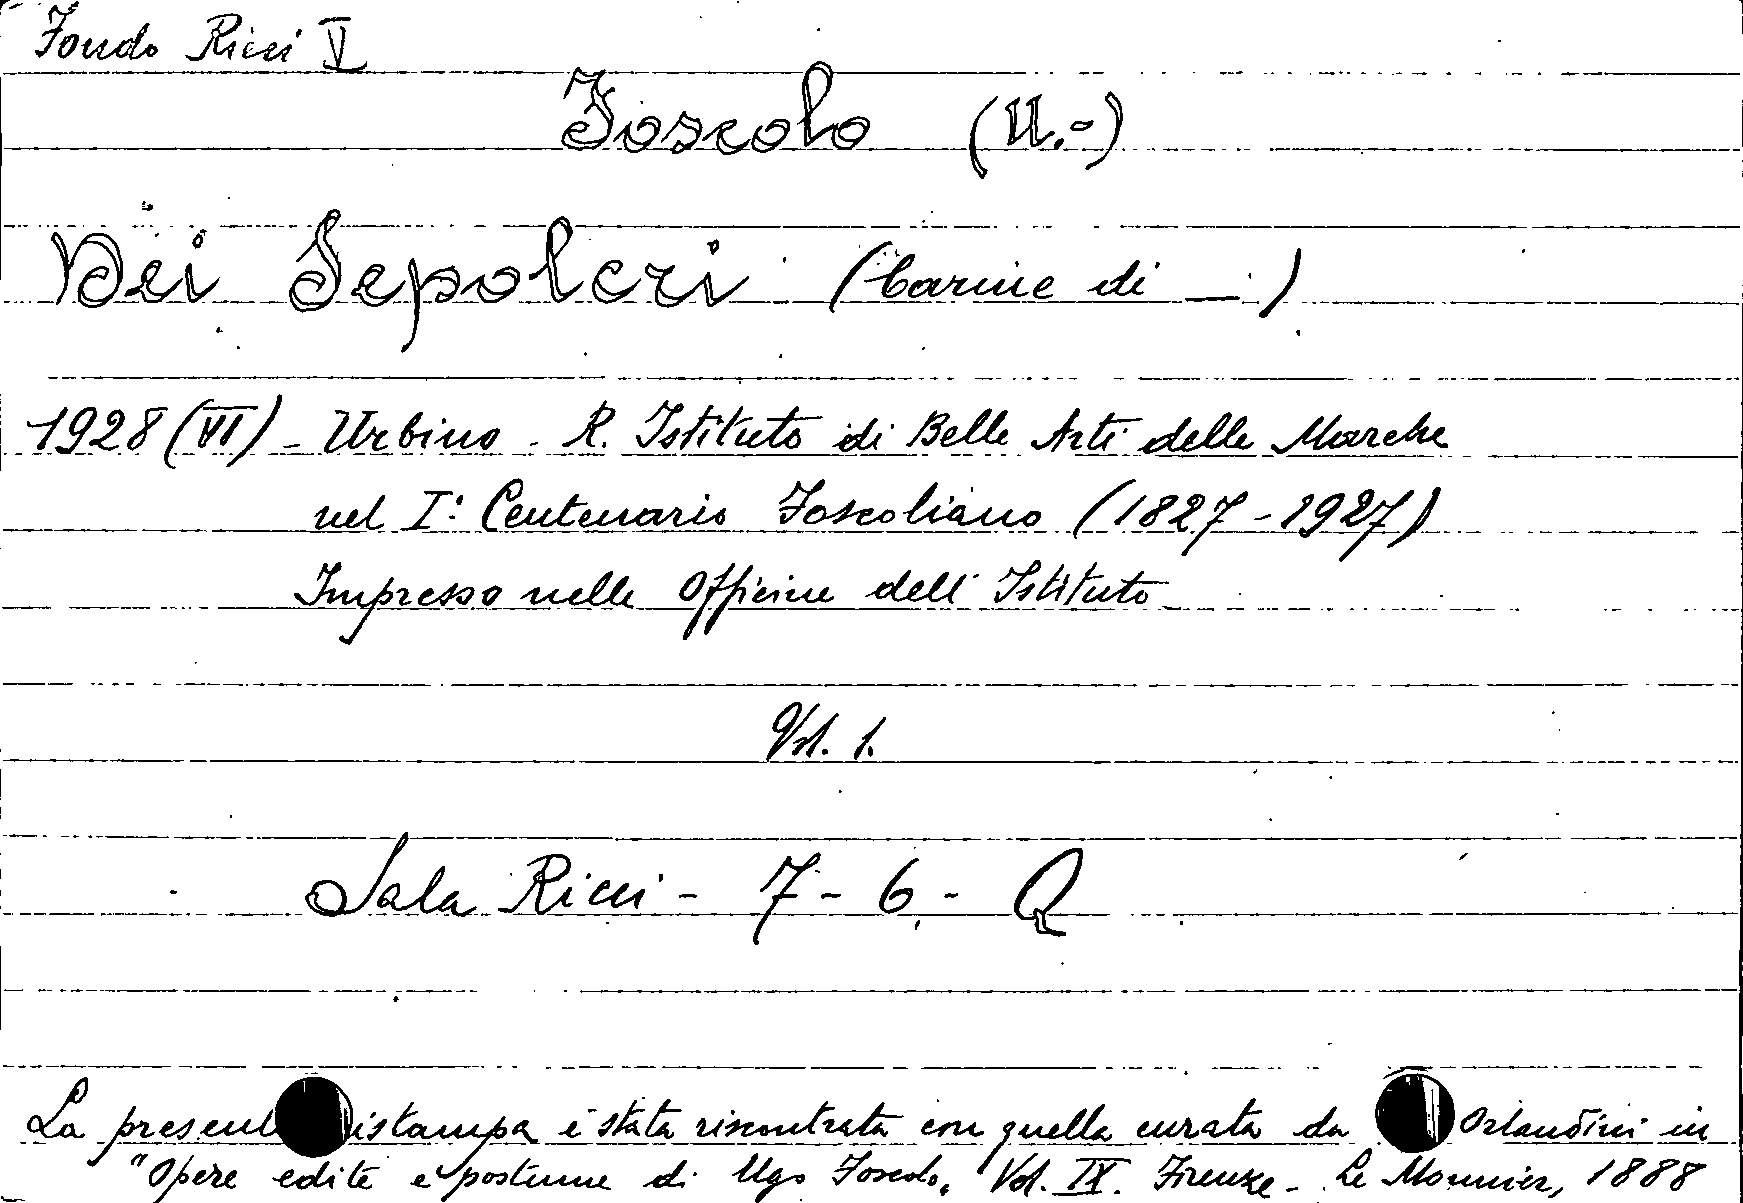 Fondo Ricci V
Foscolo (U.-)
Dei Sepolcri (Carme di — )
1928 (VI) - Urbino - R. Istituto di Belle Arti delle Marche
nel I° Centenario Foscoliano (1827-1927)
Impresso nelle Officine dell'Istituto
Vol. 1.
Sala Ricci - 7 - 6 - Q
La present istampa è stata riscontrata con quella curata da Orlandini in
"Opere edite e postume di Ugo Foscolo" Vol. IX. Firenze - Le Monnier, 1888